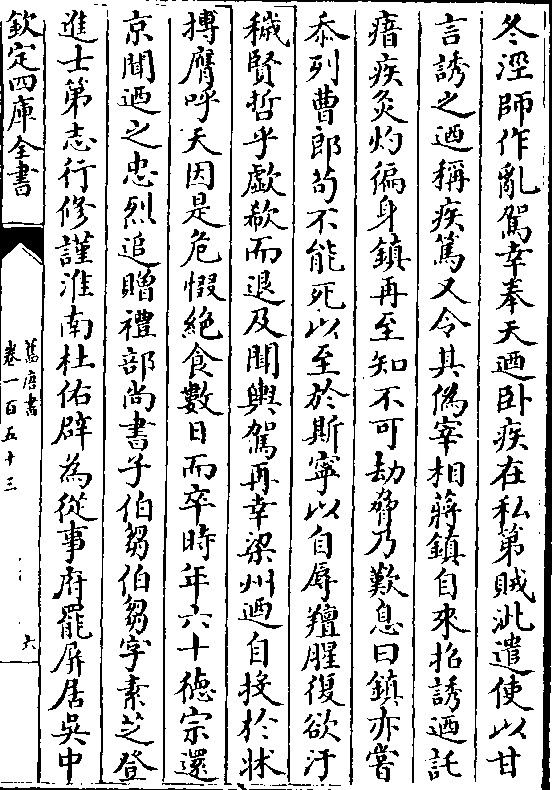 冬涇師作亂駕幸奉天迺卧疾在私第賊泚遣使以甘
言誘之迺稱疾篤又令其偽宰相蔣鎮自來招誘迺託
瘖疾灸灼徧身鎮再至知不可劫脅乃歎息曰鎮亦嘗
忝列曹郎茍不能死以至於斯寧以自辱羶腥復欲汙
穢賢哲乎歔欷而退及聞輿駕再幸梁州迺自投於牀
搏膺呼天因是危惙絕食數日而卒時年六十德宗還
京聞迺之忠烈追贈禮部尚書子伯芻伯芻字素芝登
進士第志行修謹淮南杜佑辟為從事府罷屏居吳中
欽定四庫全書
舊唐書
卷一百五十三
六